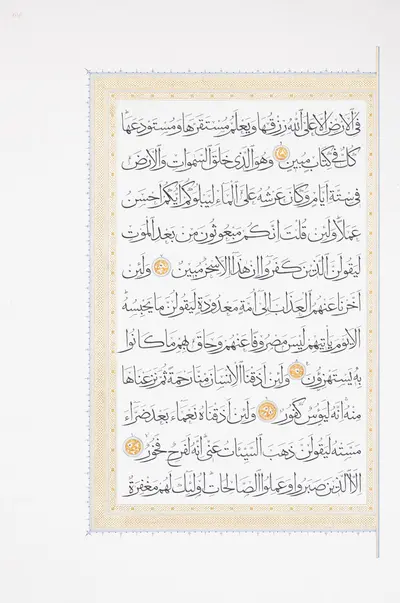 في الأرض إلا على الله رزقها ويعلم مستقرها ومستودعها
كل في كتاب مبين وهو الذي خلق السموات والأرض
في ستة أيام وكان عرشه على الماء ليبلوكم أيكم أحسن
عملا ولئن قلت إنكم مبعوثون من بعد الموت
ليقولن الذين كفروا إن هذا إلا سحر مبين ولئن
أخرنا عنهم العذاب إلى أمة معدودة ليقولن ما يحبسه
ألا يوم يأتيهم ليس مصروفا عنهم وحاق بهم ما كانوا
به يستهزؤن ولئن أذقنا الإنسان منا رحمة ثم نزعناها
منه إنه ليؤس كفور ولئن أذقناه نعماء بعد ضراء
مسته ليقولن ذهب السيئات عني إنه لفرح فخور
إلا الذين صبروا وعملوا الصالحات أولئك لهم مغفرة